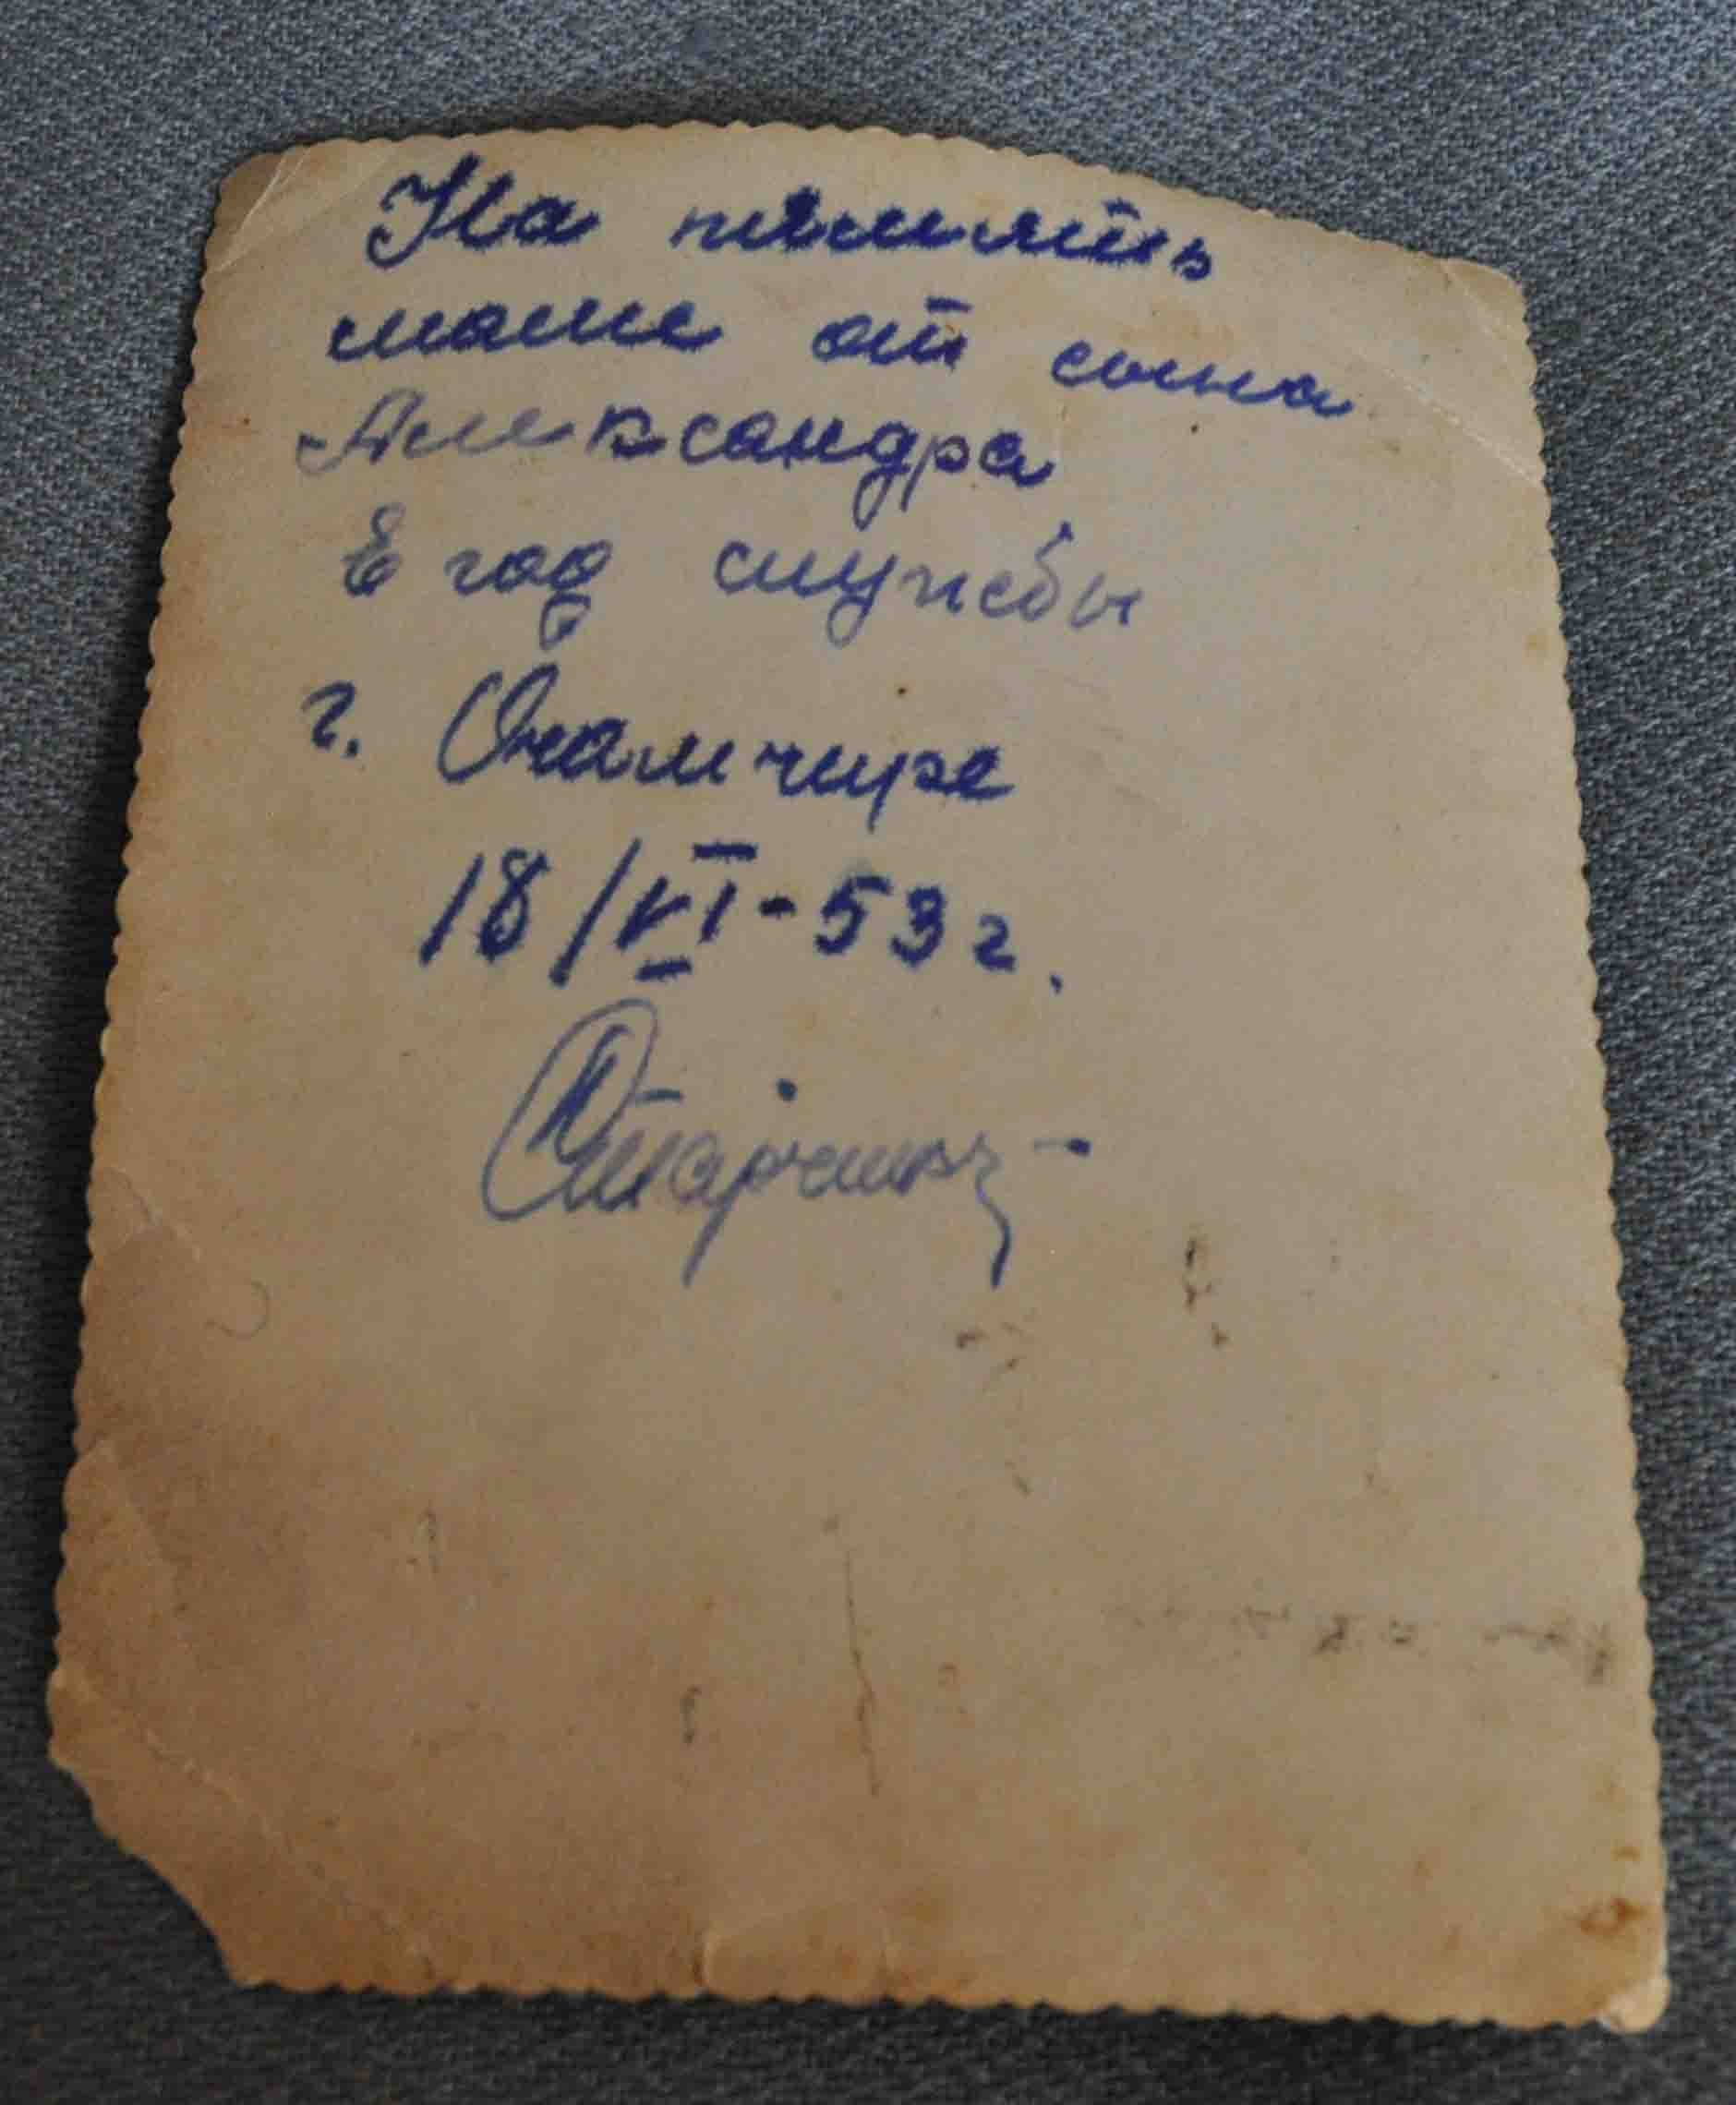 На память
маме от сына
Александра
год службы
г. Очамчире
18/VI-53 г.